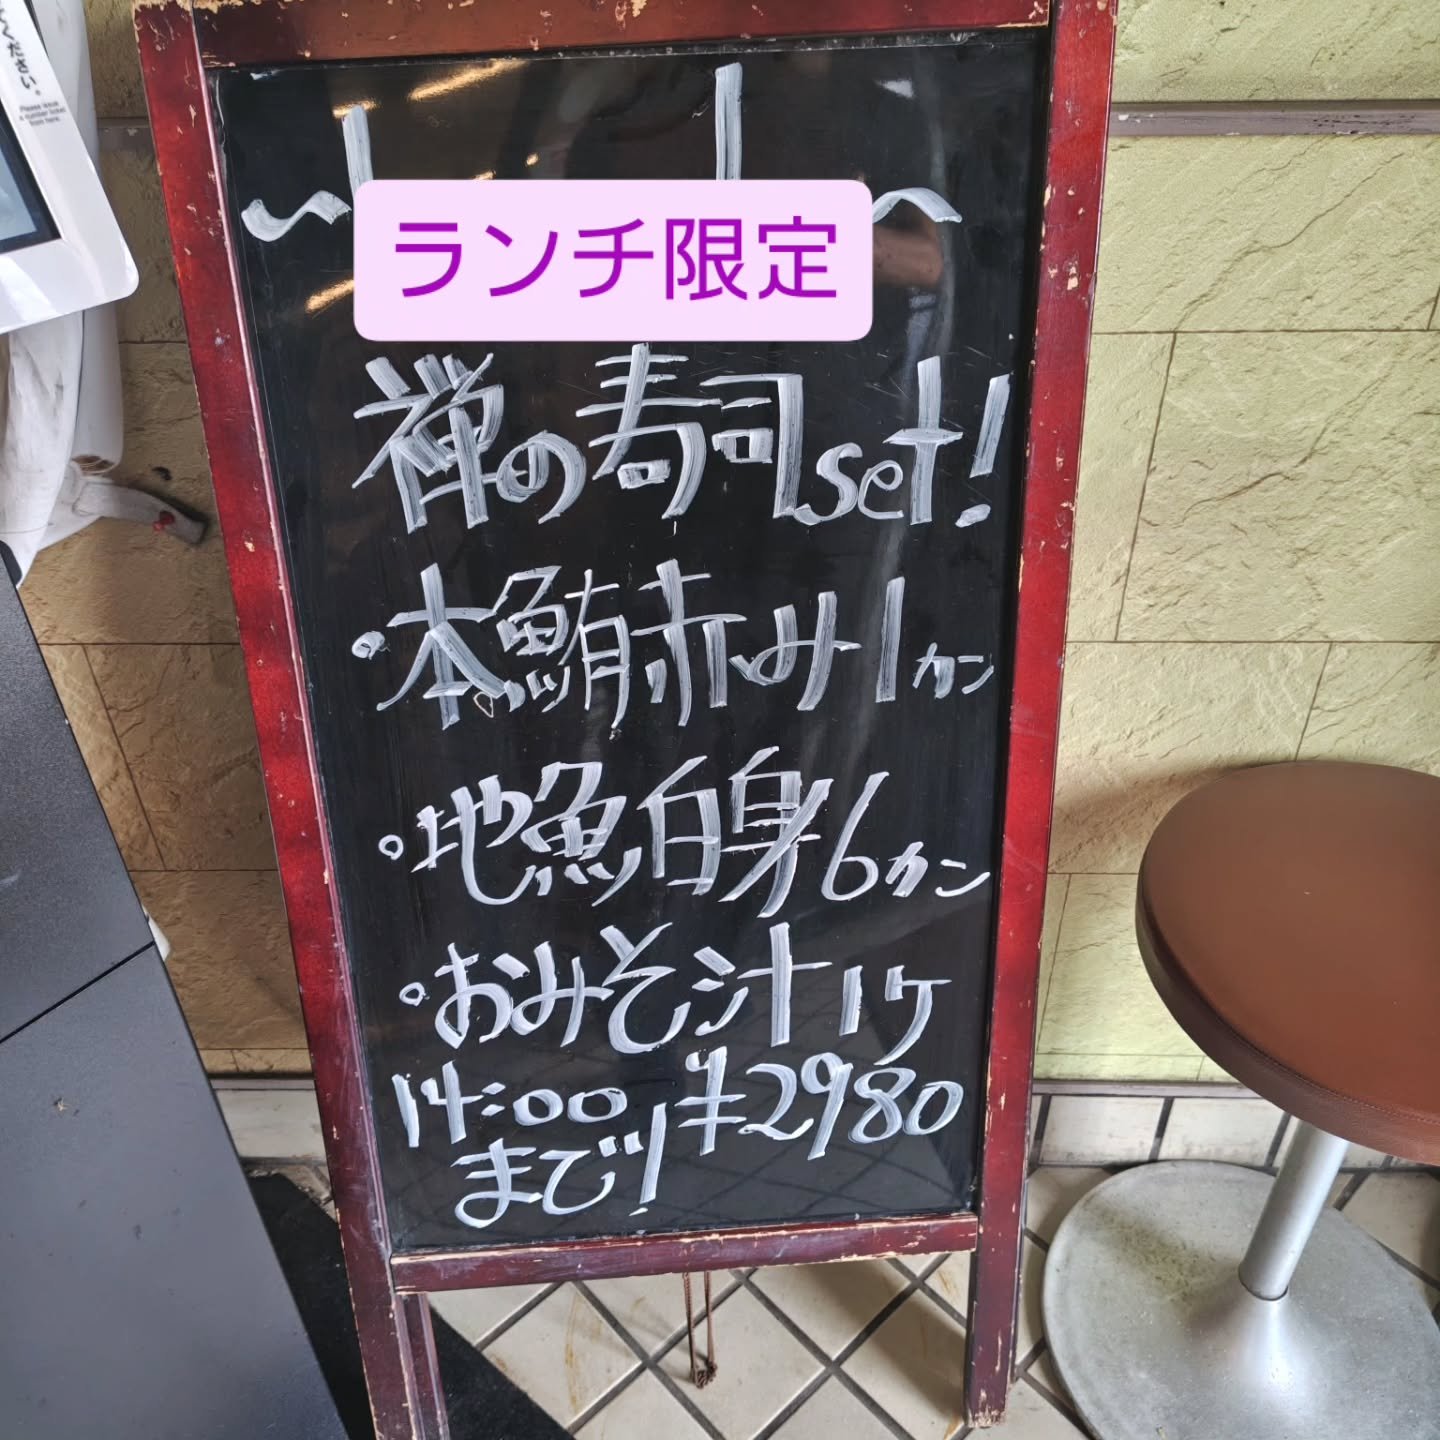 ください。
Please issue
a number ticket
from here.
ランチ限定
禅の寿司set!
・本鮪赤み1カン
・地魚白身6カン
・おみそ汁1ケ
14:00 ¥2980
まで!